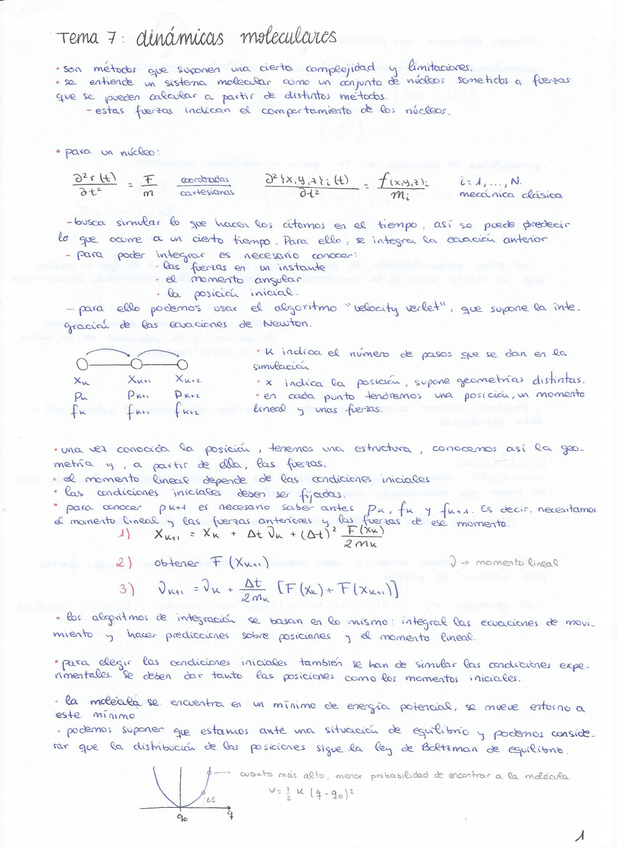 Tema 7: dinámicas moleculares
• son métodos que suponen una cierta complejidad y limitaciones.
• se entiende un sistema molecular como un conjunto de núcleos sometidos a fuerzas
que se pueden calcular a partir de distintos métodos.
– estas fuerzas indican el comportamiento de los núcleos.
• para un núcleo:
∂²r(t)/∂t² = F/m coordenadas cartesianas ∂²{x,y,z}i(t)/∂t² = f(x,y,z)i/mi i=1,...,N. mecánica clásica
– busca simular lo que hacen los átomos en el tiempo, así se puede predecir
lo que ocurre a un cierto tiempo. Para ello, se integra la ecuación anterior
– para poder integrar es necesario conocer:
• las fuerzas en un instante
• el momento angular
• la posición inicial.
– para ello podemos usar el algoritmo "velocity verlet", que supone la inte-
gración de las ecuaciones de Newton.
xk xk+1 xk+2
pk pk+1 pk+2
fk fk+1 fk+2
• K indica el número de pasos que se dan en la
simulación
• x indica la posición, supone geometrías distintas.
• en cada punto tendremos una posición, un momento
lineal y unas fuerzas.
• una vez conocida la posición, tenemos una estructura, conocemos así la geo-
metría y, a partir de ella, las fuerzas.
• el momento lineal depende de las condiciones iniciales
• las condiciones iniciales deben ser fijadas.
• para conocer pk+1 es necesario saber antes pk, fk y fk+1. Es decir, necesitamos
el momento lineal y las fuerzas anteriores y las fuerzas de ese momento.
1) Xk+1 = Xk + Δt νk + (Δt)² F(Xk)/2mk
2) obtener F(Xk+1) ν → momento lineal
3) νk+1 = νk + Δt/2mk [F(Xk) + F(Xk+1)]
• los algoritmos de integración se basan en lo mismo: integral las ecuaciones de movi-
miento y hacer predicciones sobre posiciones y el momento lineal.
• para elegir las condiciones iniciales también se han de simular las condiciones expe-
rimentales. Se deben dar tanto las posiciones como los momentos iniciales.
• la molécula se encuentra en un mínimo de energía potencial, se mueve entorno a
este mínimo
• podemos suponer que estamos ante una situación de equilibrio y podemos conside-
rar que la distribución de las posiciones sigue la ley de Boltzman de equilibrio.
cuanto más alto, menor probabilidad de encontrar a la molécula
V = ½ K (q - q0)²
q0 q
1